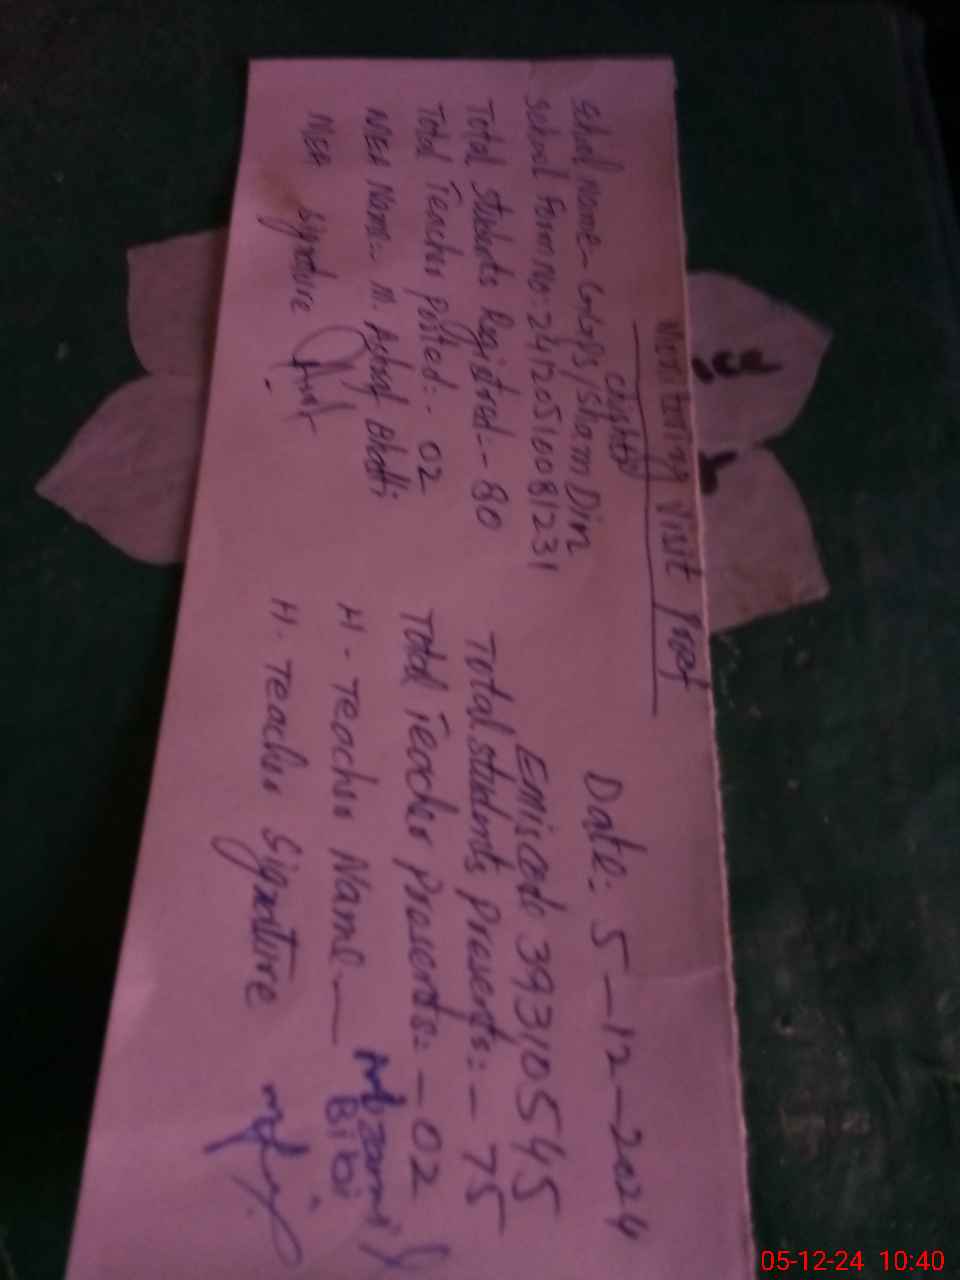 Monitoring Visit Proof
Date:- 5-12-2024
School Name- GGPS/Sham Din
Chishti
School Form No:-2412051008 1231
Emis code 39310545
Total Students Registred:- 80
Total Students Presents:- 75
Total Teacher Posted:- 02
Total Teacher Presents:- 02
MEA Name- M. Ashraf Bhatti
H- Teacher Name-
Bibi
MEA Signature
H- Teacher Signature
ice
05-12-24 10:40